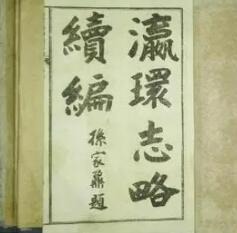 瀛環志略
續編
孫家鼐題